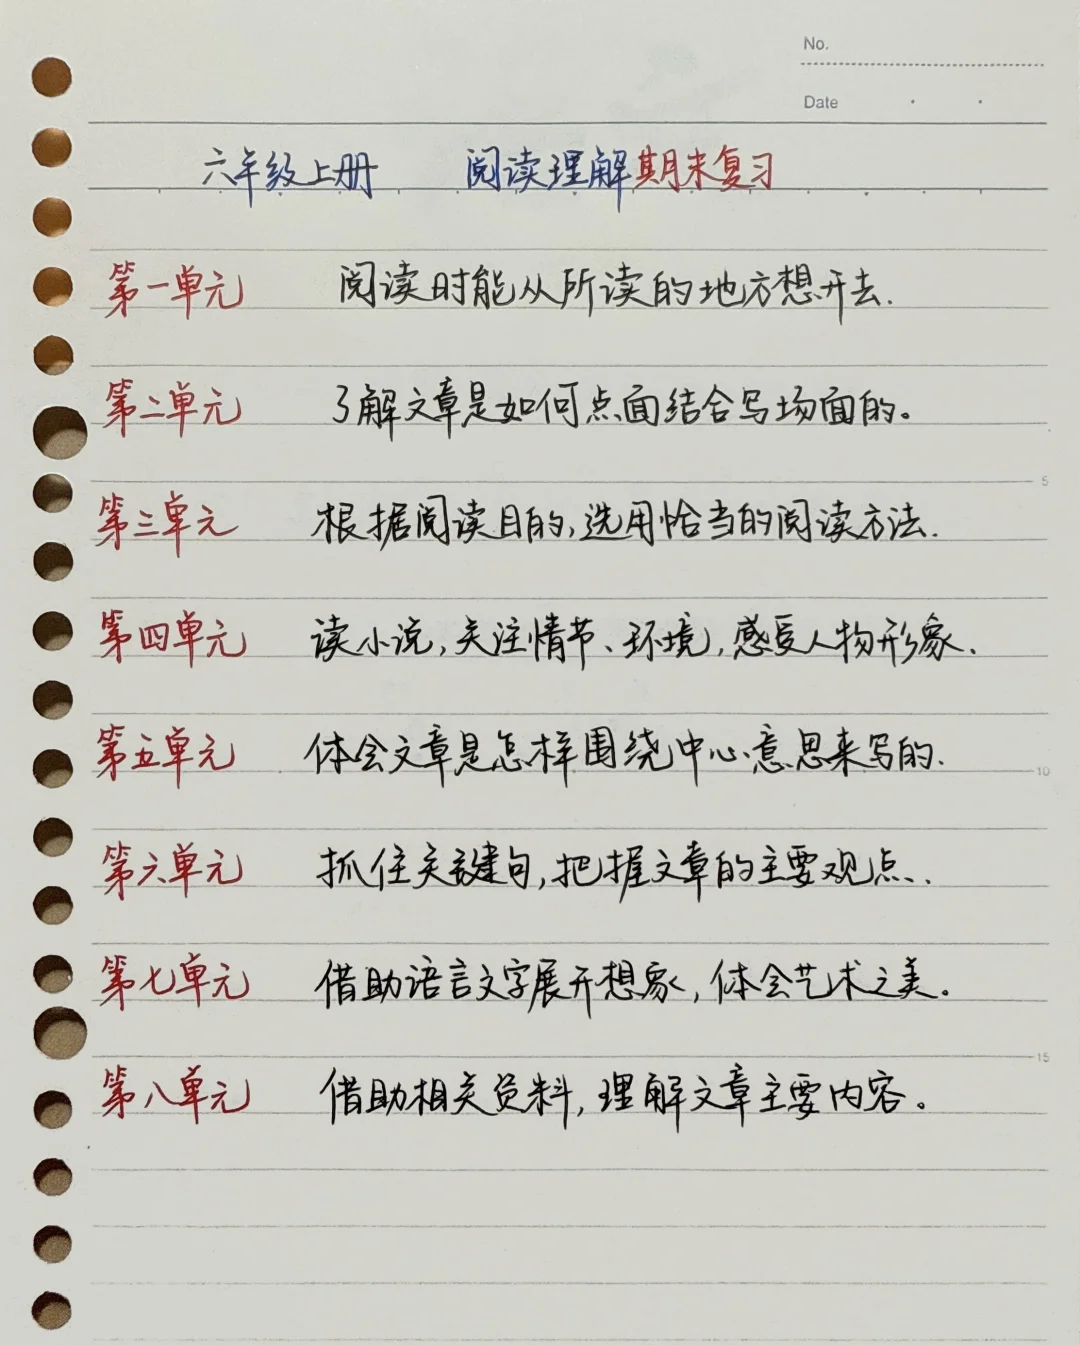 No.
Date
六年级上册 阅读理解期末复习
第一单元 阅读时能从所读的地方想开去.
第二单元 了解文章是如何点面结合写场面的。
5
第三单元 根据阅读目的,选用恰当的阅读方法.
第四单元 读小说,关注情节、环境,感受人物形象.
第五单元 体会文章是怎样围绕中心意思来写的.
10
第六单元 抓住关键句,把握文章的主要观点.
第七单元 借助语言文字展开想象,体会艺术之美。
15
第八单元 借助相关资料,理解文章主要内容。